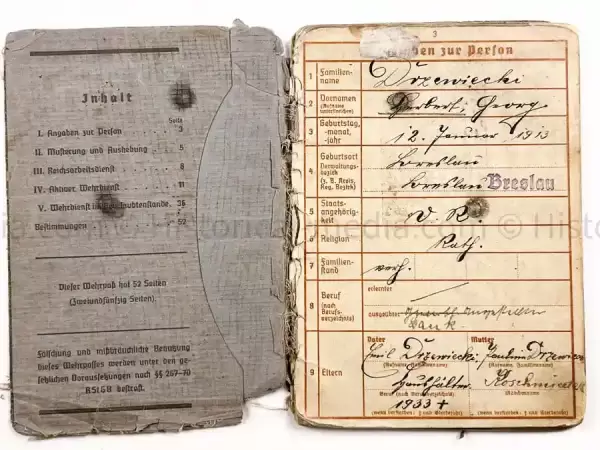 Inhalt
Seite
I. Angaben zur Person 3
II. Musterung und Aushebung 5
III. Reichsarbeitsdienst 8
IV. Aktiver Wehrdienst 11
V. Wehrdienst im Beurlaubtenstande. 36
Bestimmungen 52
Dieser Wehrpaß hat 52 Seiten
(Zweiundfünfzig Seiten).
Fälschung und mißbräuchliche Benutzung
dieses Wehrpasses werden unter den ge-
setzlichen Voraussetzungen nach §§ 267-70
RStGB bestraft.
3
Angaben zur Person
1 Familien-
name
Drzewiecki
2 Vornamen
(Rufname
unterstreichen)
Herbert, Georg
3 Geburtstag,
-monat,
-jahr
12. Januar 1913
4 Geburtsort
Verwaltungs-
bezirk
(z. B. Kreis,
Reg. Bezirk)
Breslau
Breslau Breslau
5 Staats-
angehörig-
keit
D. R.
6 Religion
Kath.
7 Familien-
stand
verh.
8 Beruf
(nach
Berufs-
verzeichnis)
erlernter
ausgeübter
Bank.
9 Eltern
Vater Mutter
Emil Drzewiecki
(Rufname, Familienname) (Rufname, Familienname)
Haushälter Koschmieder
Beruf (nach Berufsverzeichnis) Mädchenname
1933 +
(wenn verstorben: † und Sterbejahr) (wenn verstorben: † und Sterbejahr)
© Historicalmedia.com